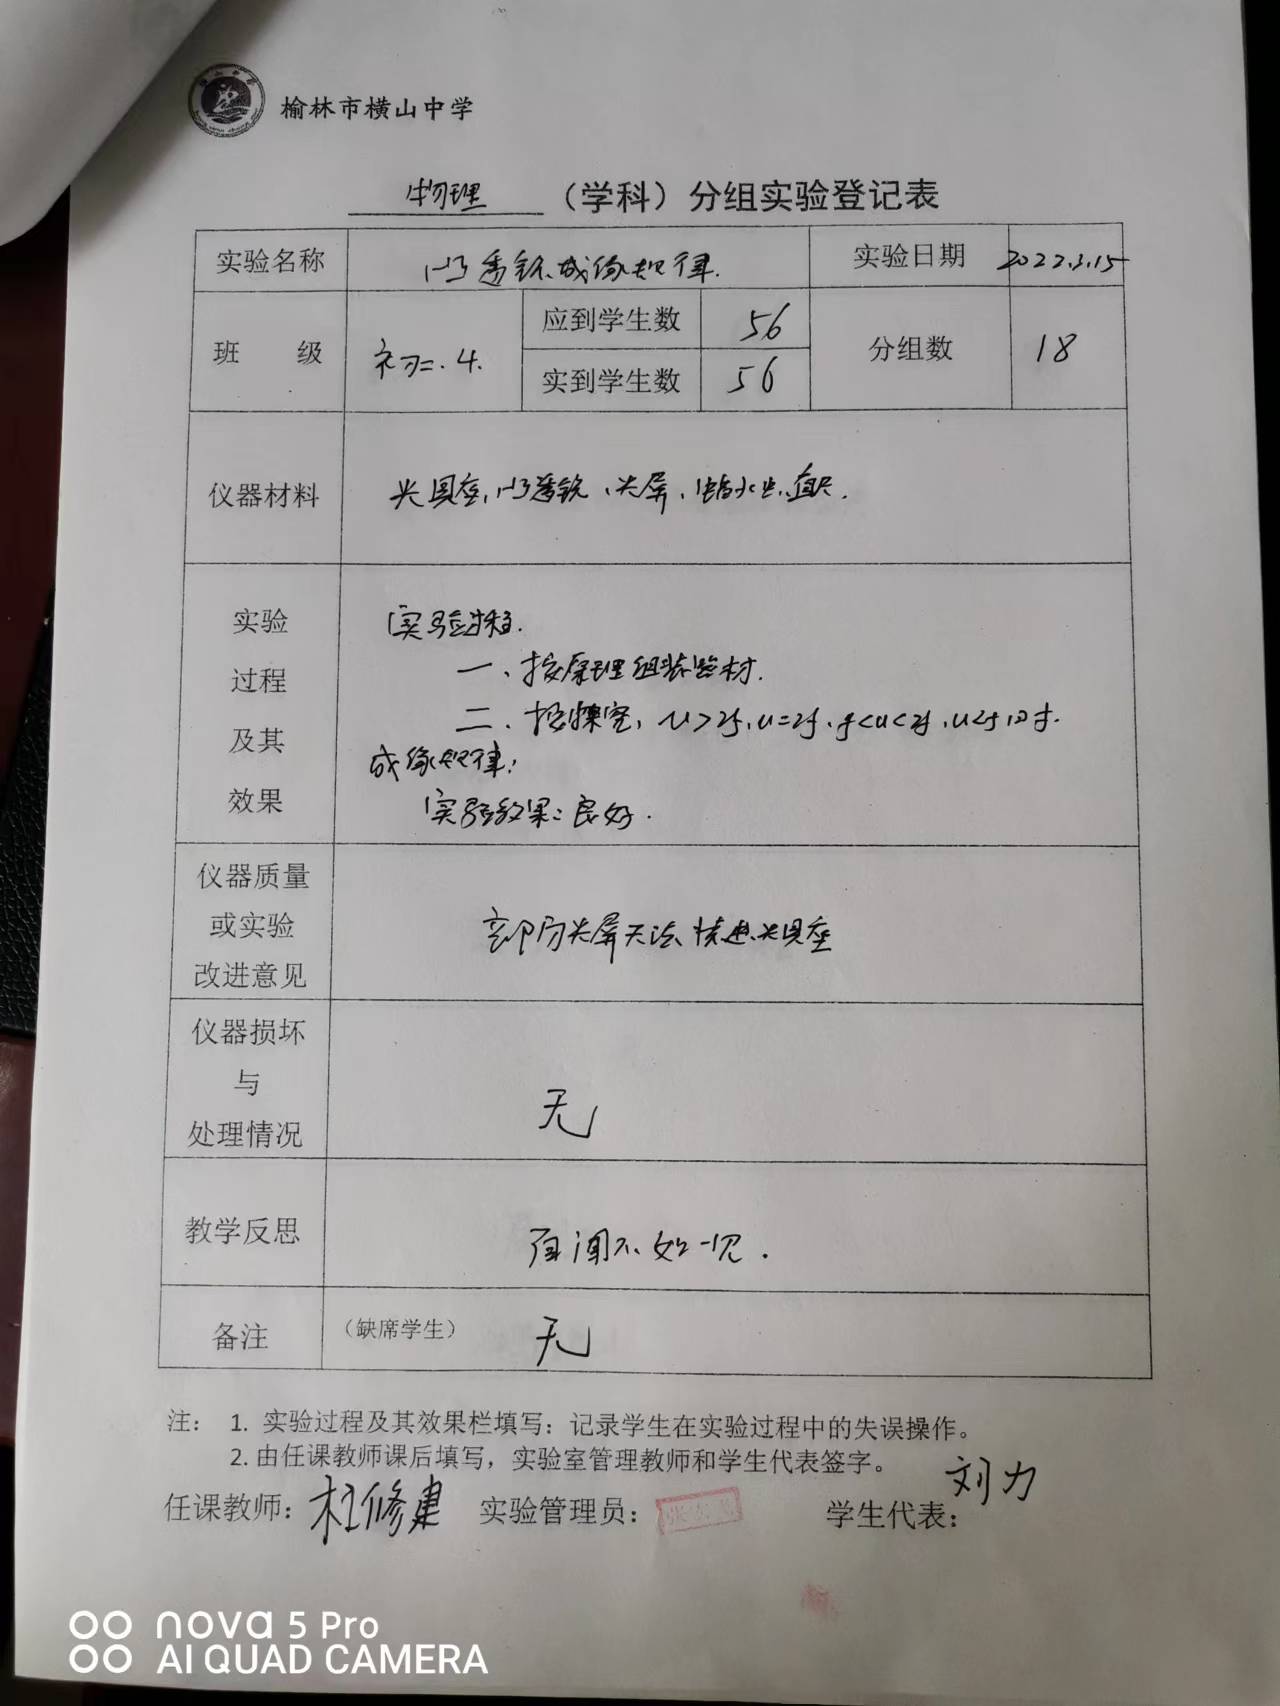 榆林市横山中学
物理 （学科）分组实验登记表
实验名称 凸透镜成像规律. 实验日期 2022.3.15
班 级 初二.4. 应到学生数 56 分组数 18
实到学生数 56
仪器材料 光具座,凸透镜、光屏,蜡烛、直尺.
实验
过程
及其
效果
实验过程.
一、按原理组装器材.
二、探究, u>2f, u=2f, f<u<2f, u<f 时
成像规律;
实验效果:良好.
仪器质量
或实验
改进意见
部分光屏无法 光具座
仪器损坏
与
处理情况
无
教学反思 百闻不如一见.
备注 （缺席学生） 无
注： 1. 实验过程及其效果栏填写：记录学生在实验过程中的失误操作。
2. 由任课教师课后填写，实验室管理教师和学生代表签字。
任课教师：杜修建 实验管理员： 学生代表：刘力
nova 5 Pro
AI QUAD CAMERA